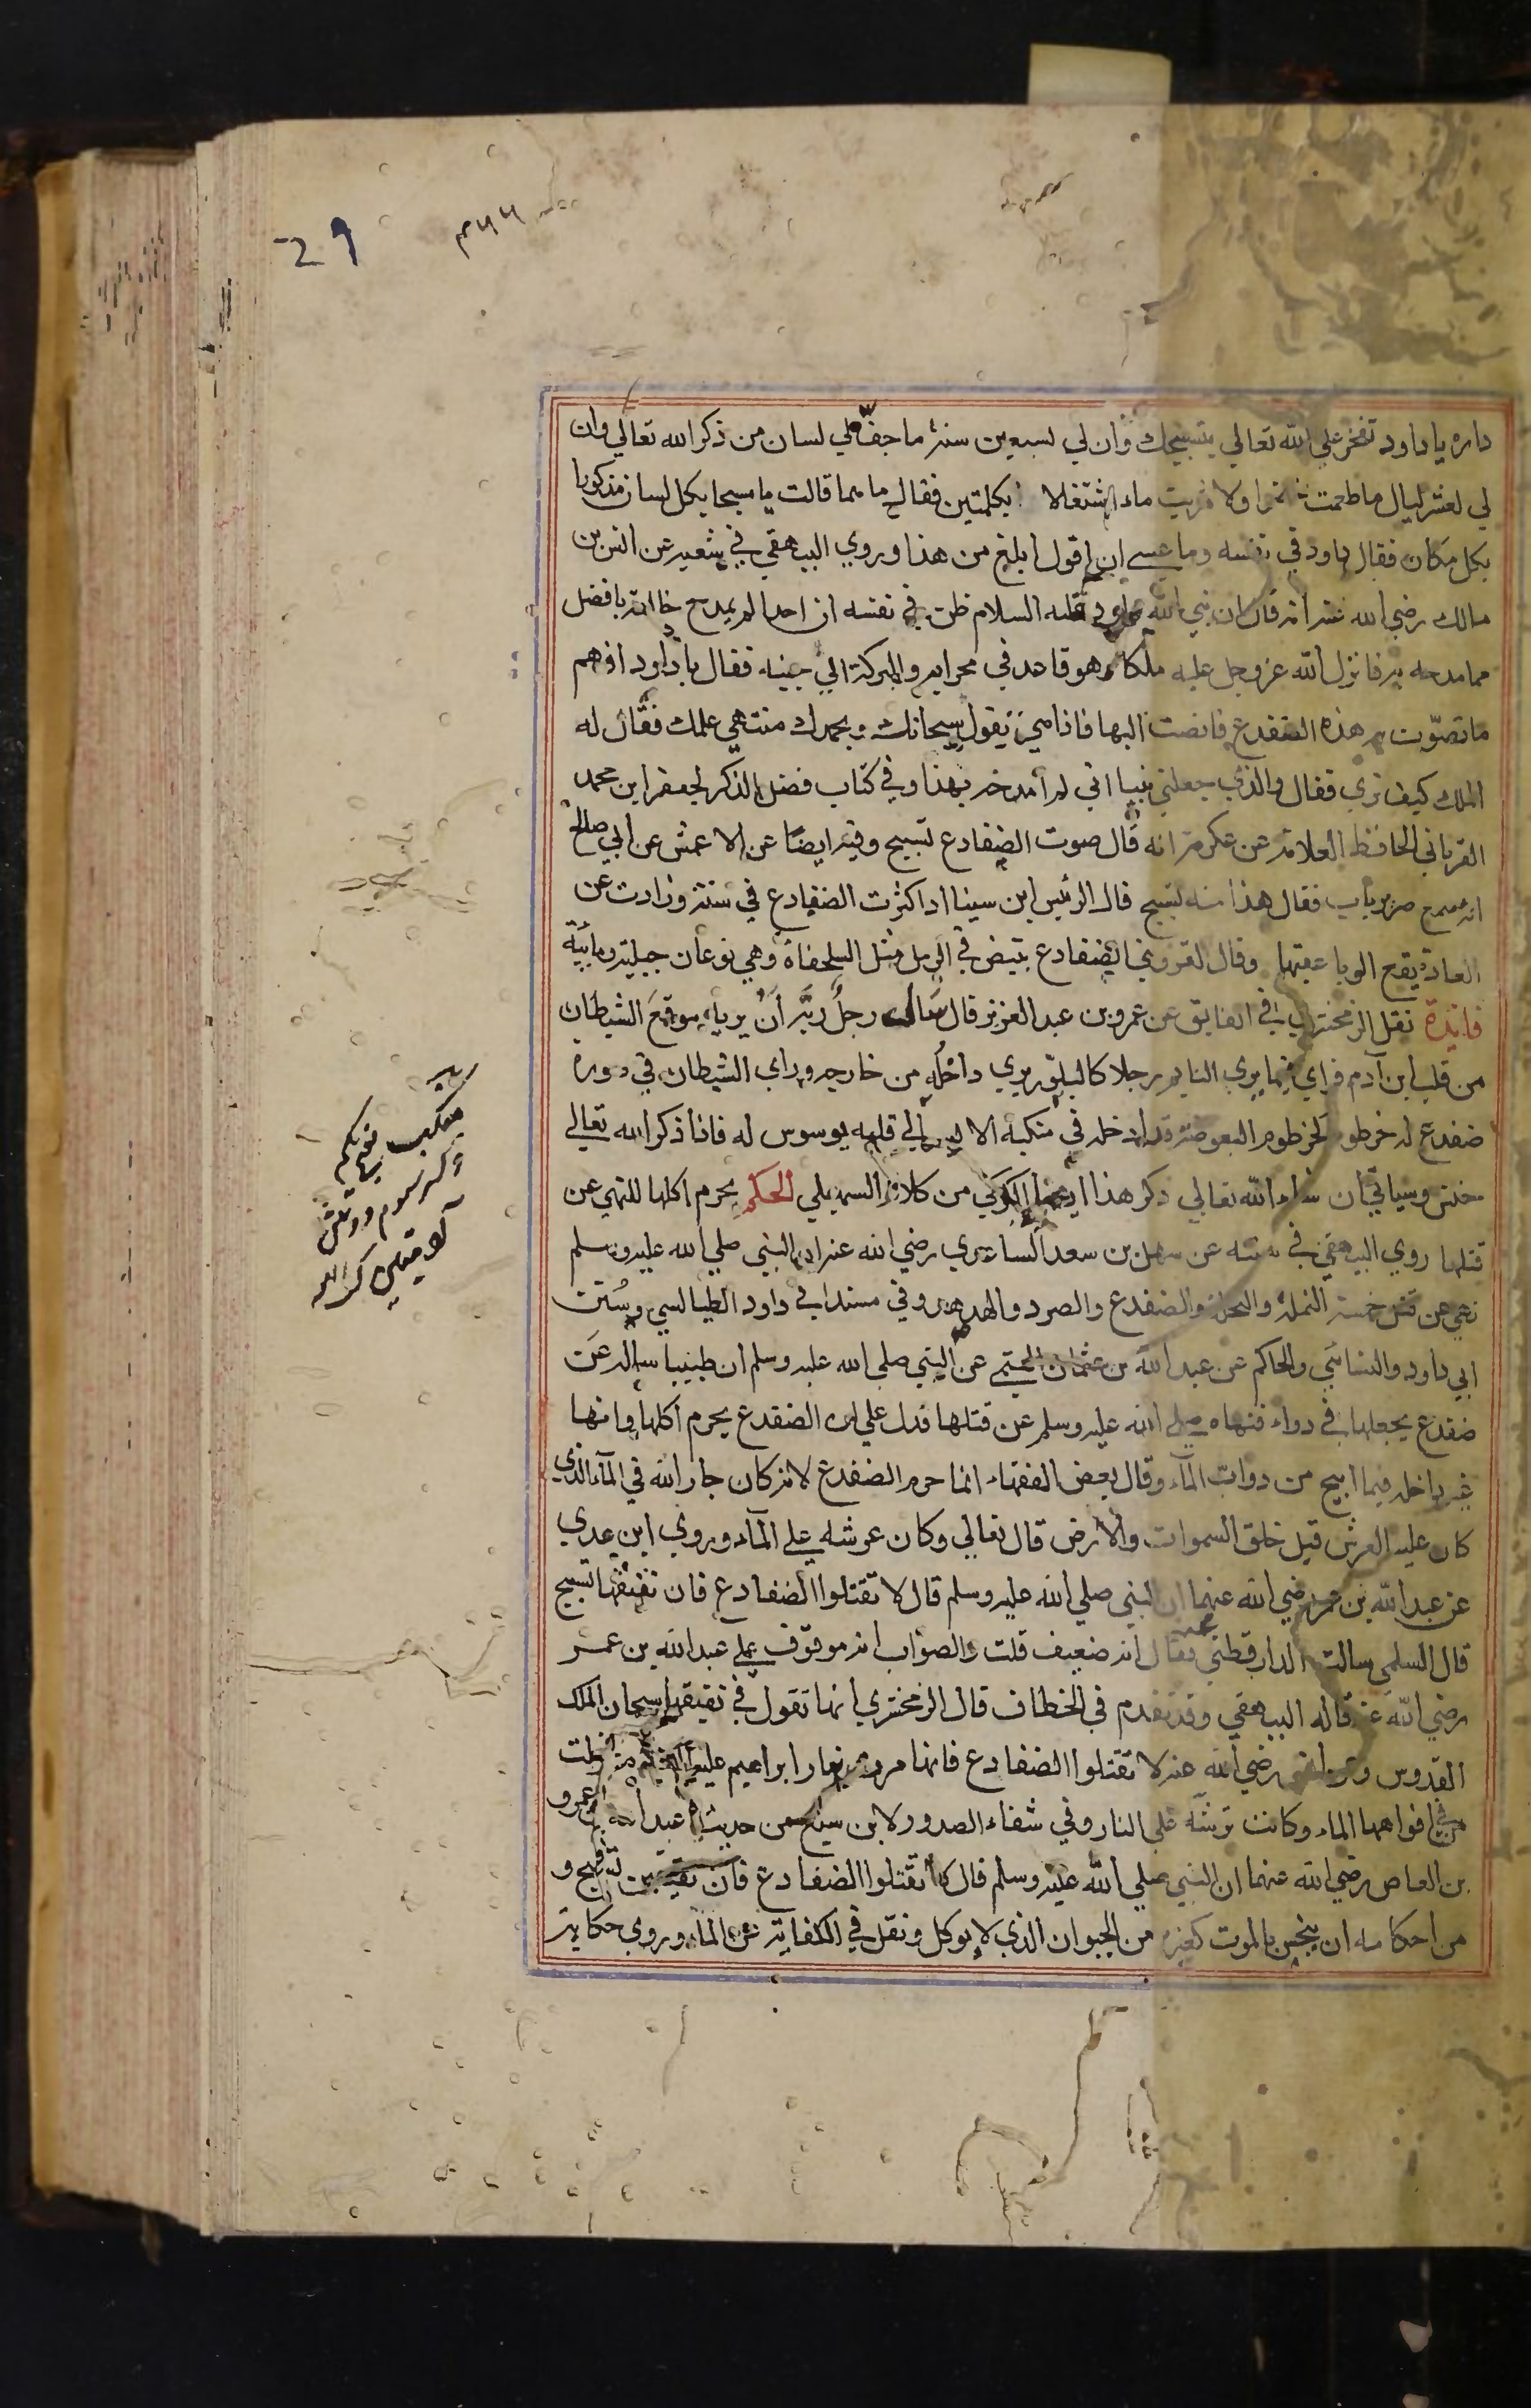 29
داره يا داود تفخر علي الله تعالي بتسبيحك وان لي لسبعين سنة ما جف لي لسان من ذكر الله تعالي وان
لي لعشر ليال ما طعمت خضرا ولا شربت ماء اشتغالا بكلمتين فقال ما هما قالت يا مسبحا بكل لسان مذكورا
بكل مكان فقال داود في نفسه وما عسي ان اقول ابلغ من هذا وروي البيهقي في شعبه عن انس بن
مالك رضي الله عنه انه قال ان نبي الله داود عليه السلام ظن في نفسه ان احدا لم يمدح خالقه بافضل
مما مدحه به فانزل الله عز وجل عليه ملكا وهو قاعد في محرابه والبركة الي جنبه فقال يا داود افهم
ما تصوت به هذه الضفدع فانصت اليها فاذا هي تقول سبحانك وبحمدك منتهي علمك فقال له
الملك كيف تري فقال والذي جعلني نبيا اني لم امدحه بهذا وفي كتاب فضل الذكر لجعفر ابن محمد
القرياني الحافظ العلامة عن عكرمة انه قال صوت الضفادع تسبيح وفيه ايضا عن الاعمش عن ابي صالح
انه سمع صرير باب فقال هذا منه تسبيح قال الرئيس ابن سينا اذا كثرت الضفادع في سنة وزادت عن
العادة يقع الوبا عقبها وقال القزويني الضفادع تبيض في الرمل مثل السلحفاة وهي نوعان جبلية ومائية
فائدة نقل الزمخشري في الفايق عن عمر بن عبد العزيز قال سال رجل ربه ان يريه موقع الشيطان
من قلب ابن آدم فراي فيما يري النايم رجلا كالبلور يري داخله من خارجه وراي الشيطان في صورة
ضفدع له خرطوم كخرطوم البعوضة قد ادخله في منكبه الايسر الي قلبه يوسوس له فاذا ذكر الله تعالي
خنس وسياتي ان شاء الله تعالي ذكر هذا ايضا في الكركي من كلام السهيلي الحكم يحرم اكلها للنهي عن
قتلها روي البيهقي في سننه عن سهل بن سعد الساعدي رضي الله عنه ان النبي صلي الله عليه وسلم
نهي عن قتل خمسة النملة والنحلة والضفدع والصرد والهدهد وفي مسند ابي داود الطيالسي وسنن
ابي داود والنسائي والحاكم عن عبد الله بن عثمان التيمي عن النبي صلي الله عليه وسلم ان طبيبا ساله عن
ضفدع يجعلها في دواء فنهاه صلي الله عليه وسلم عن قتلها فدل علي ان الضفدع يحرم اكلها وانها
غير داخلة فيما ابيح من دواب الماء وقال بعض الفقهاء انما حرم الضفدع لانه كان جار الله في الماء الذي
كان عليه العرش قبل خلق السموات والارض قال تعالي وكان عرشه علي الماء وروي ابن عدي
عن عبد الله بن عمر رضي الله عنهما ان النبي صلي الله عليه وسلم قال لا تقتلوا الضفادع فان نقيقها تسبيح
قال السلمي سالت الدارقطني عنه فقال انه ضعيف قلت والصواب انه موقوف علي عبد الله بن عمر
رضي الله عنه قاله البيهقي وقد تقدم في الخطاف قال الزمخشري انها تقول في نقيقها سبحان الملك
القدوس وعن انس رضي الله عنه لا تقتلوا الضفادع فانها مرت بنار ابراهيم عليه السلام
في افواهها الماء وكانت ترشه علي النار وفي شفاء الصدور لابن سبع من حديث عبد الله بن عمرو
بن العاص رضي الله عنهما ان النبي صلي الله عليه وسلم قال لا تقتلوا الضفادع فان نقيقهن تسبيح و
من احكامه ان ينجس بالموت كغيره من الحيوان الذي لا يوكل ونقل في الكفاية عن الماوردي حكاية